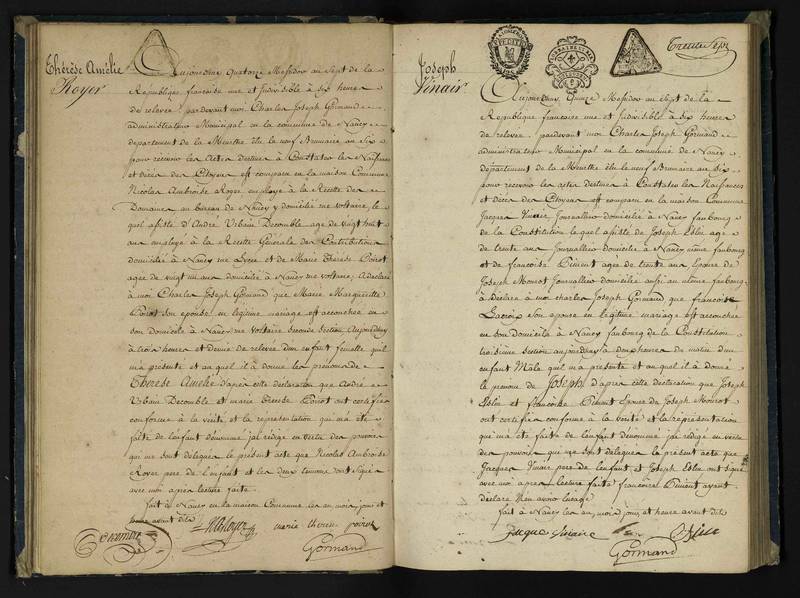 Thérèse Amélie
Royer
Aujourd'huy quatorze Messidor an Sept de la
République française une et Indivisible à six heures
de relevée pardevant moi Charles Joseph Gormand
administrateur Municipal en la commune de Nancy
departement de la Meurthe élu le neuf Brumaire an Six
pour recevoir les Actes destinés à Constater les Naissances
et décès des Citoyens est comparu en la maison Commune
Nicolas Ambroise Royer employé à la Recette des
Domaines au bureau de Nancy y domicilié rue voltaire, le
quel assisté d'André Urbain Decomble agé de vingt huit
ans employé à la Recette Générale des Contributions
domicilié à Nancy rue et de Marie Thérèse Poirot
agée de vingt un ans domiciliée à Nancy rue voltaire, A déclaré
à moi Charles Joseph Gormand que Marie Margueritte
Poirot son epouse en légitime mariage est accouchée en
son domicile à Nancy rue Voltaire Seconde Section Aujourd'huy
à trois heures et demie de relevée d'un enfant femelle qu'il
m'a présenté et auquel il a donné les prénoms de
Thérèse Amélie d'après cette déclaration que André
Urbain Decomble et marie therese Poirot ont certifiée
conforme à la vérité et la représentation qui m'a été
faite de l'enfant dénommé j'ai rédigé en vertu des pouvoirs
qui me sont délégués le présent acte que Nicolas Ambroise
Royer pere de l'enfant et les deux temoins ont signé
avec moi apres lecture faite.
fait à Nancy en la maison Commune les an, mois, jour et
heure avant dits
Decomble Royer marie therese poirot
Gormand
Trente Sept
Joseph
Vinair
Aujourd'huy Quinze Messidor an sept de la
République française une et Indivisible à six heures
de relevée, pardevant moi Charles Joseph Gormand
administrateur Municipal en la commune de Nancy
département de la Meurthe élu le neuf Brumaire an Six
pour recevoir les actes destinés à Constater les Naissances
et décès des Citoyens est comparu en la maison Commune
Jacques Journallier domicilié à Nancy faubourg
de la Constitution lequel assisté de Joseph agé
de trente ans Journallier domicilié à Nancy même faubourg
et de francoise Diment agée de trente ans, Epouse de
Joseph Journallier domiciliée aussi au même faubourg,
a déclaré à moi charles Joseph Gormand que francoise
Lacroix son épouse en légitime mariage est accouchée
en son domicile à Nancy faubourg de la Constitution
troisieme Section aujourd'huy à heures du matin d'un
enfant Mâle qu'il m'a présenté et auquel il a donné
le prenom de Joseph d'apres cette déclaration que Joseph
et francoise Diment Epouse de Joseph
ont certifiée conforme à la vérité et la représentation
qui m'a été faite de l'enfant dénommé j'ai rédigé en vertu
des pouvoirs qui me sont délégués le présent acte que
Jacques pere de l'enfant et Joseph ont signé
avec moi apres lecture faite francoise Diment ayant
déclaré n'en avoir l'usage
fait à Nancy les an, mois, jour, et heure avant dits
Jacque
Gormand